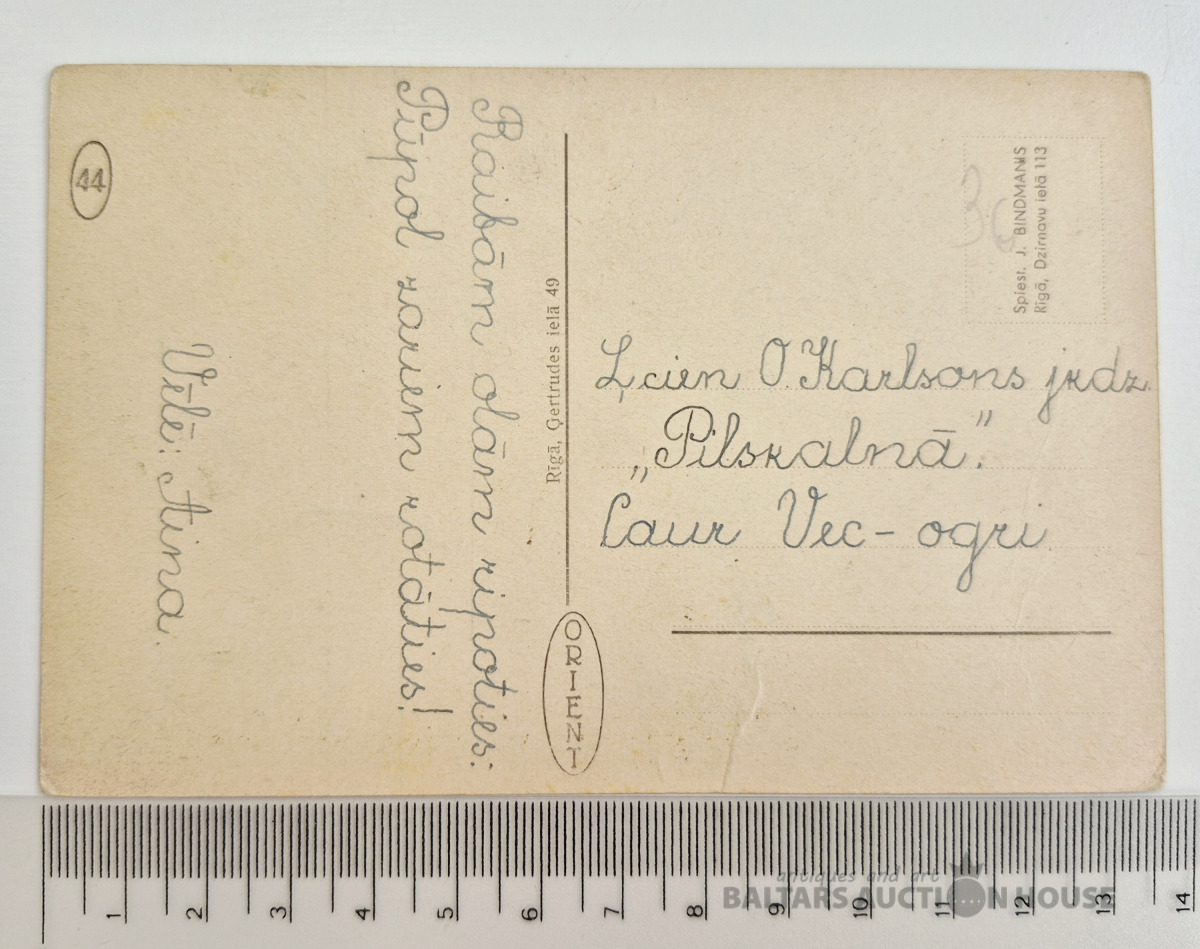 44
Raibām olām ripoties:
Pūpol zariem rotāties!
Vēlē: Aina.
Rīgā, Ģertrudes ielā 49
ORIENT
Spiest. J. BINDMANIS
Rīgā, Dzirnavu ielā 113
36
Ļcien O. Karlsons jkdz.
„Pilskalnā."
Caur Vec-ogri
1 2 3 4 5 6 7 8 9 10 11 12 13 14
antiques and art
BALTARS AUCTION HOUSE